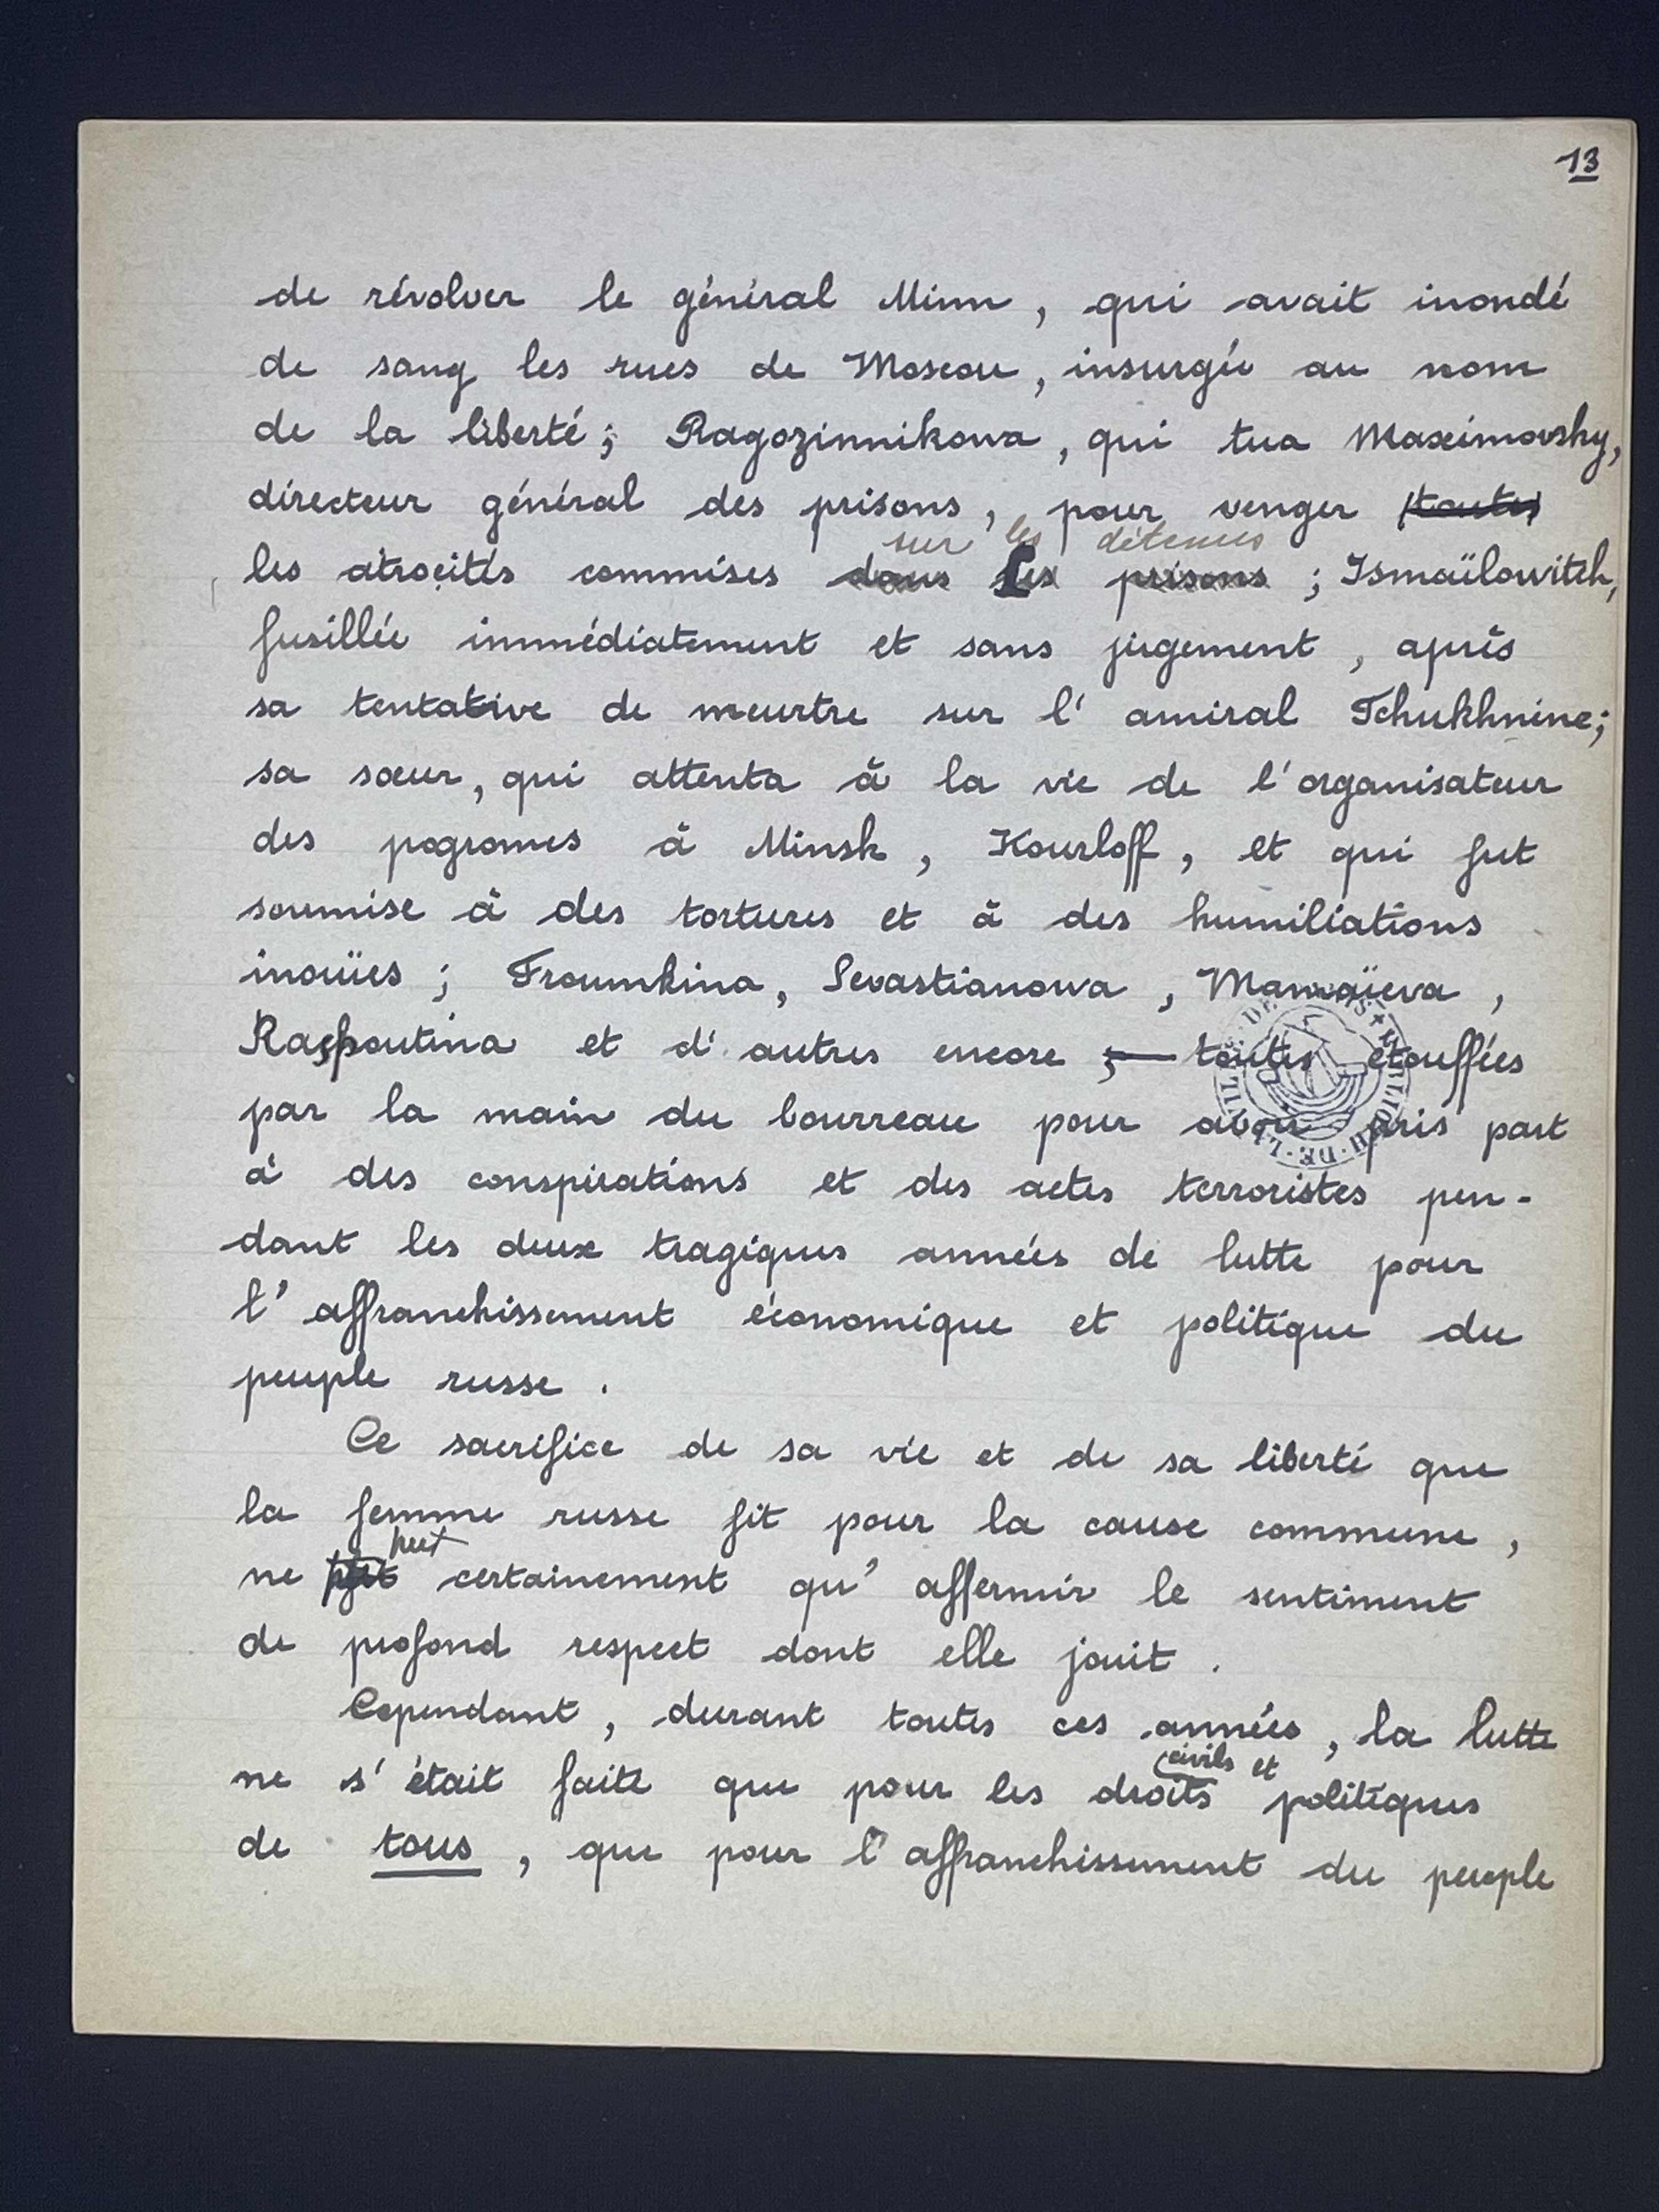 13
de révolver le général Minn, qui avait inondé
de sang les rues de Moscou, insurgée au nom
de la liberté; Ragozinnikowa, qui tua Maximovsky,
directeur général des prisons, pour venger toutes
sur les détenus
les atrocités commises dans les prisons ; Ismaïlowitch,
fusillée immédiatement et sans jugement, après
sa tentative de meurtre sur l' amiral Tchukhnine;
sa sœur, qui attenta à la vie de l'organisateur
des pogromes à Minsk, Kourloff, et qui fut
soumise à des tortures et à des humiliations
inouïes ; Froumkina, Sevastianowa, Mamaïeva,
Raspoutina et d'autres encore ; — toutes étouffées
par la main du bourreau pour avoir pris part
à des conspirations et des actes terroristes pen-
dant les deux tragiques années de lutte pour
l' affranchissement économique et politique du
peuple russe.
Ce sacrifice de sa vie et de sa liberté que
la femme russe fit pour la cause commune,
peut
ne certainement qu' affermir le sentiment
de profond respect dont elle jouit.
Cependant, durant toutes ces années, la lutte
civils et
ne s' était faite que pour les droits politiques
de tous, que pour l'affranchissement du peuple